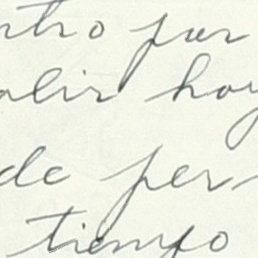 ntro por
alir hoy
de per
tiempo